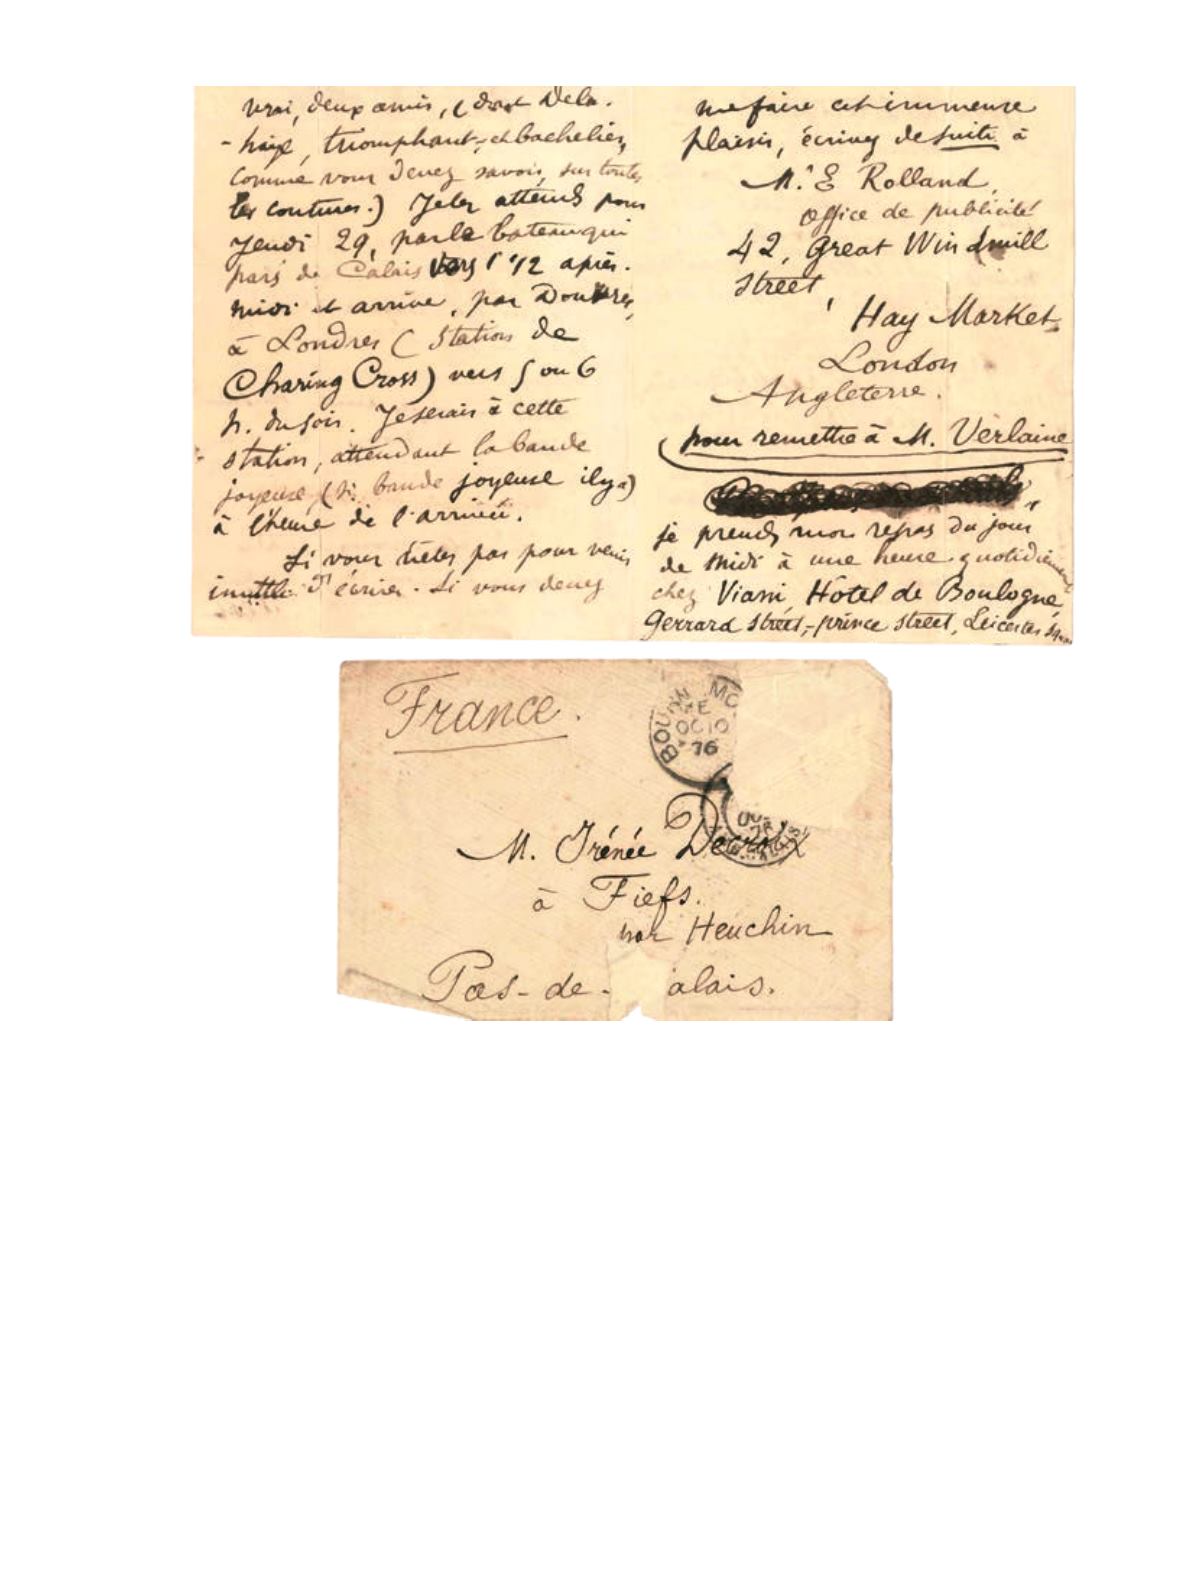 vrai, deux amis, (dont Dela-
-haye, triomphant, et bachelier,
comme vous devez savoir, sur toutes
les coutures.) Je les attends pour
Jeudi 29, par le bateau qui
pars de Calais vers 1 1/2 après-
midi et arrive, par Douvres,
à Londres (Station de
Charing Cross) vers 5 ou 6
h. du soir. Je serais à cette
station, attendant la bande
joyeuse (si bande joyeuse il y a)
à l'heure de l'arrivée.
Si vous n'êtes pas pour venir
inutile d'écrire. Si vous devez
me faire cet immense
plaisir, écrivez de suite à
M. E Rolland,
office de publicité
42, Great Windmill
Street,
Hay Market
London
Angleterre.
pour remettre à M. Verlaine
je prends mon repas du jour
de midi à une heure quotidiennement
chez Viani, Hôtel de Boulogne,
Gerrard street, - prince street, Leicester
France.
BOU MO
OC 10
76
M. Irénée Decroix
à Fiefs.
par Heuchin
Pas-de- alais.